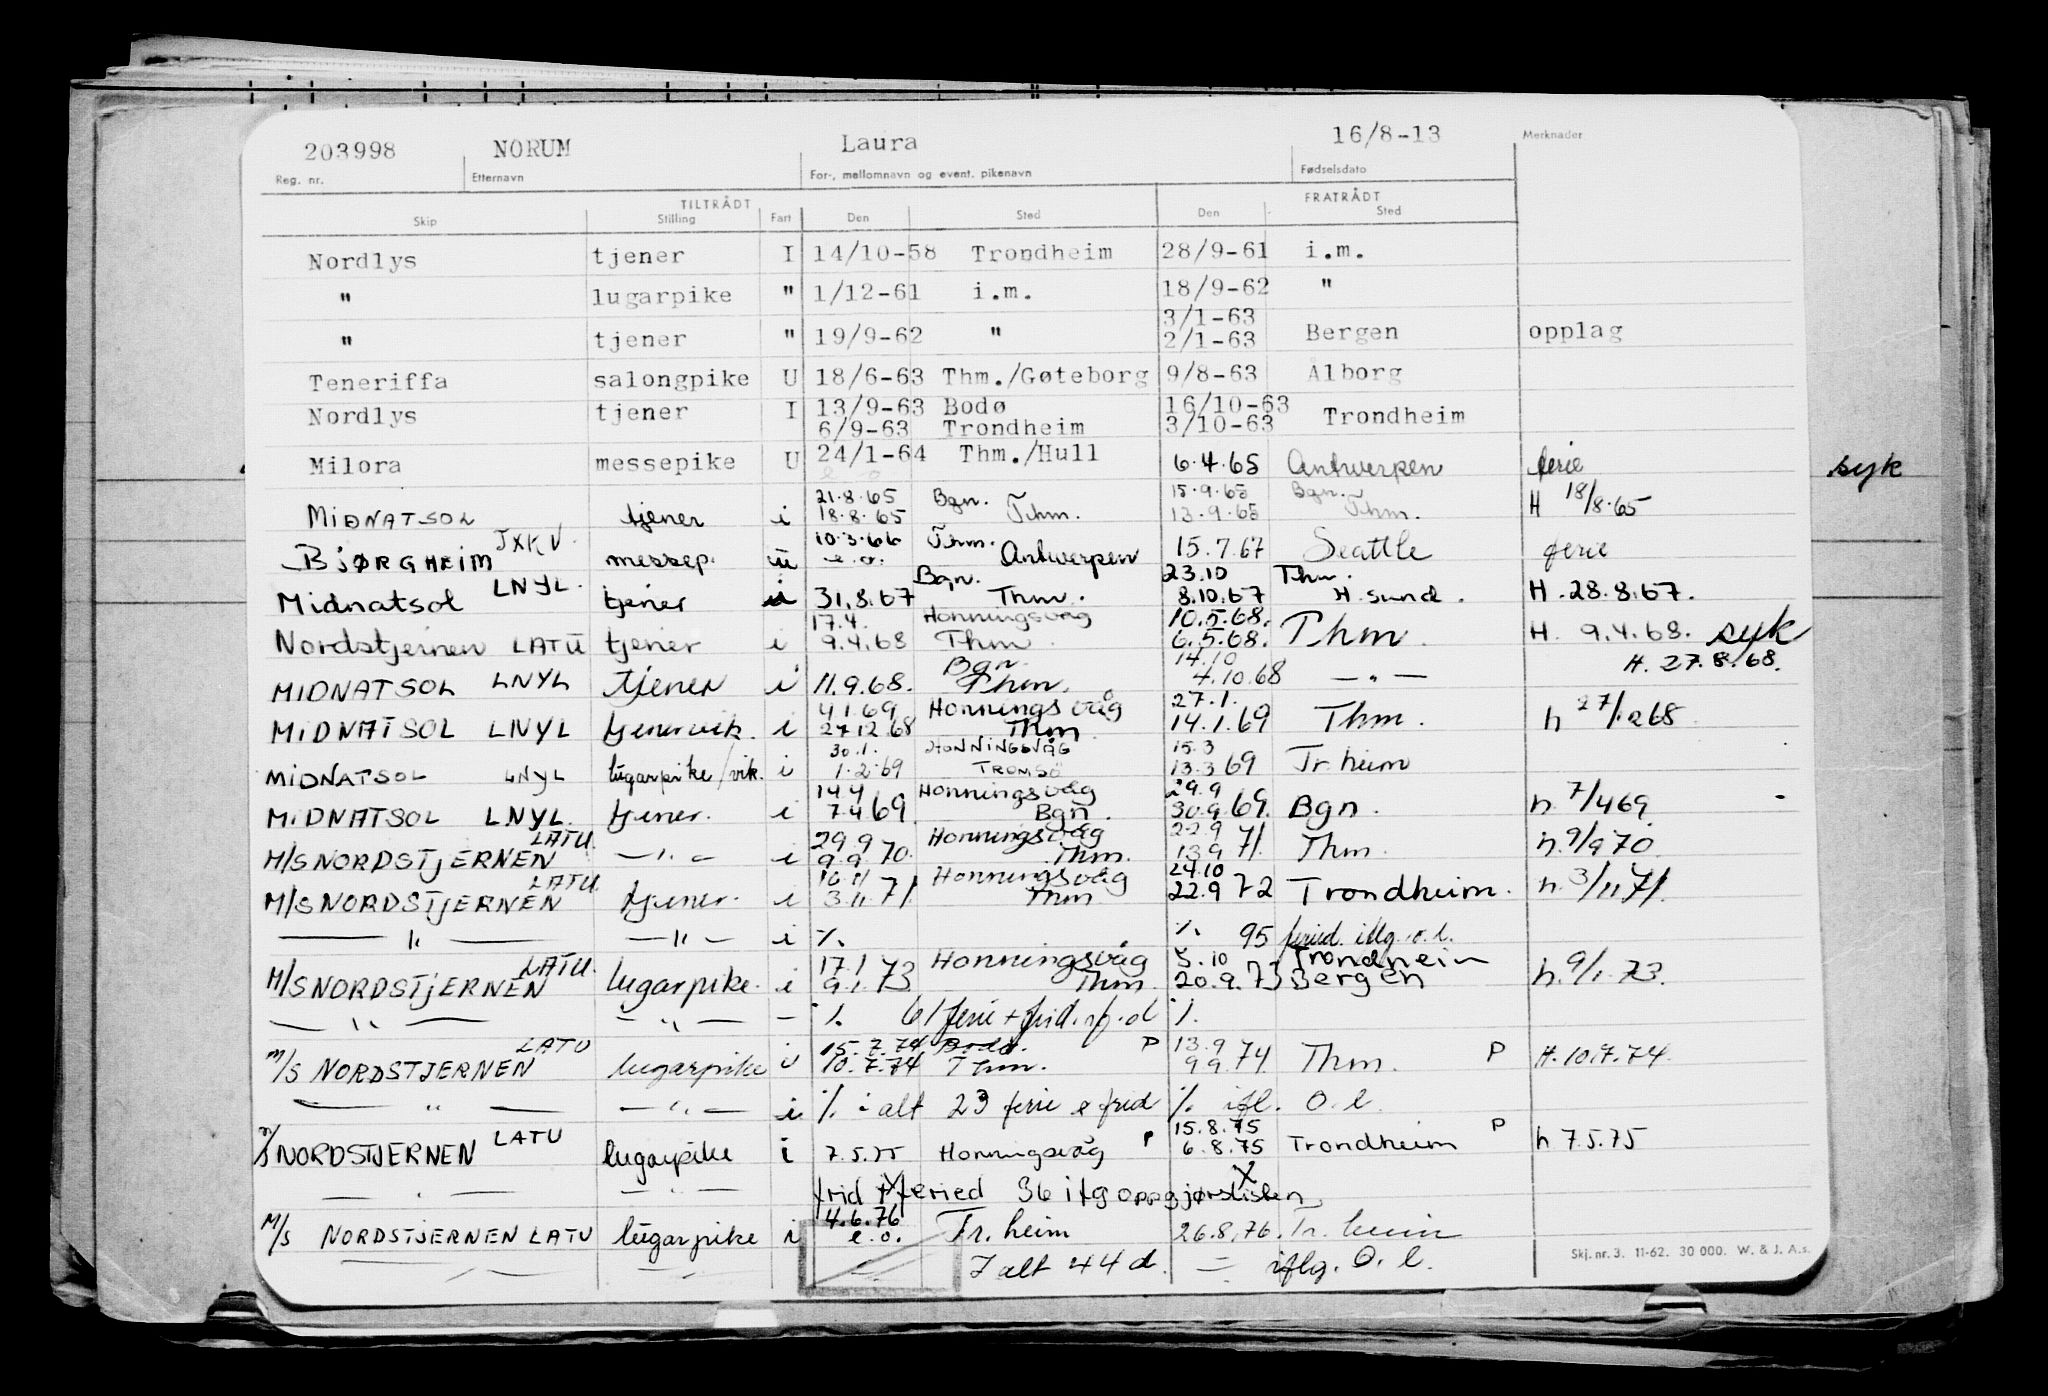 203998 NORUM Laura 16/8-13 Merknader
Reg. nr. Etternavn For-, mellomnavn og event. pikenavn Fødselsdato
TILTRÅDT FRATRÅDT
Skip Stilling Fart Den Sted Den Sted
Nordlys tjener I 14/10-58 Trondheim 28/9-61 i.m.
" lugarpike " 1/12-61 i.m. 18/9-62 "
3/1-63
" tjener " 19/9-62 " 2/1-63 Bergen opplag
Teneriffa salongpike U 18/6-63 Thm./Gøteborg 9/8-63 Ålborg
Nordlys tjener I 13/9-63 Bodø 16/10-63 Trondheim
6/9-63 Trondheim 3/10-63
Milora messepike U 24/1-64 Thm./Hull 6.4.65 Antwerpen ferie syk
21.8.65 Bgn. 15.9.65 Bgn.
MIDNATSOL tjener i 18.8.65 Thm. 13.9.65 Thm. H 18/8.65
JXKV 10.3.66 Thm.
BJØRGHEIM messep. u e.o. Antwerpen 15.7.67 Seattle ferie
LNYL. Bgn. 23.10 Thm.
Midnatsol tjener i 31.8.67 Thm. 8.10.67 H.sund. H.28.8.67.
17.4. Honningsvåg 10.5.68.
Nordstjernen LATU tjener i 9.4.68 Thm 6.5.68. Thm. H. 9.4.68. syk
Bgn. 14.10 H. 27.8.68.
MIDNATSOL LNYL tjener i 11.9.68. Thm. 4.10.68 — " —
4.1.69 Honningsvåg 27.1.
MIDNATSOL LNYL tjenervik. i 27.12.68 Thm 14.1.69 Thm. h 27/1268
30.1. HONNINGSVÅG 15.3
MIDNATSOL LNYL lugarpike/vik. i 1.2.69 TROMSÖ 13.3 69 Tr.heim
14.4 Honningsvåg 29.9
MIDNATSOL LNYL. tjener. i 7.4 69. Bgn. 30.9.69. Bgn. h. 7/469.
LATU. 29 9 Honningsvåg 22.9
M/S NORDSTJERNEN — " — i 9.9 70. Thm. 13 9 71. Thm. h. 9/9 70.
LATU. 16.11 Honningsvåg 24.10
M/S NORDSTJERNEN tjener. i 3.11.71. Thm 22.9 72 Trondheim. h. 3/11 71.
— " — — " — i ./. ./. 95 feried. iflg. o.l.
LATU. 17.1 Honningsvåg 5.10 Trondheim
M/S NORDSTJERNEN lugarpike. i 9.1.73 Thm. 20.9.73 Bergen h. 9/1.73.
— " — — " — — ./. 61 ferie + frid. ./.
LATU 15.7.74 Bodø. P 13.9
M/S NORDSTJERNEN lugarpike i 10.7.74 Thm. 9 9.74. Thm. P H. 10.7.74.
— " — — " — i ./. i alt 23 ferie e frid ./. ifl. O.l.
LATU 15.8.75 P
M/S NORDSTJERNEN lugarpike i 7.5.75 Honningsvåg P 6.8.75 Trondheim h. 7.5.75
— " — — " — frid + feried 36 iflg oppgjørslisten X
4.6.76
M/S NORDSTJERNEN LATU lugarpike i e.o. Tr.heim 26.8.76. Tr.heim
— " — — " — I alt 44 d. — " — iflg. O.l.
Skj. nr. 3. 11-62. 30 000. W. & J. A.s.